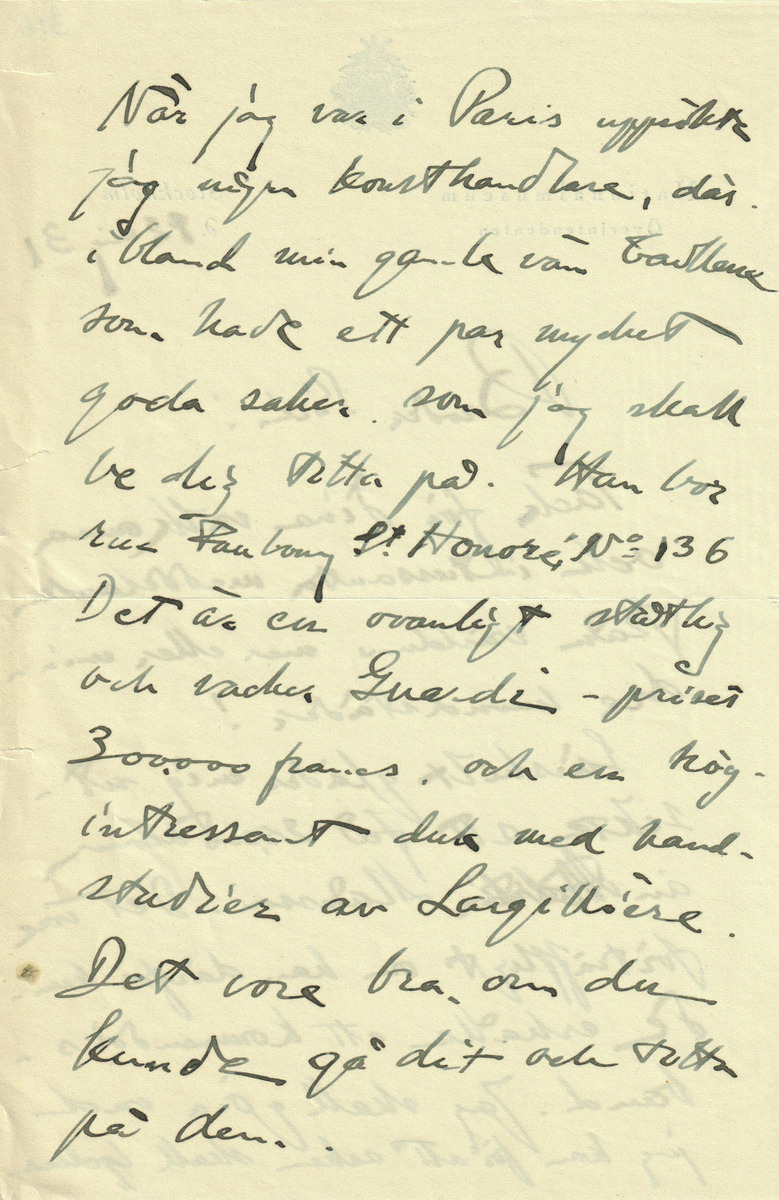 När jag var i Paris uppsökte
jag några konsthandlare, där-
ibland min gamle vän
som hade ett par mycket
goda saker som jag skall
be dig titta på. Han bor
rue Faubourg St. Honoré, No 136
Det är en ovanligt ståtlig
och vacker Guardi - priset
300.000 francs. och en hög-
intressant duk med hand-
studier av Largillière.
Det vore bra, om du
kunde gå dit och titta
på den.